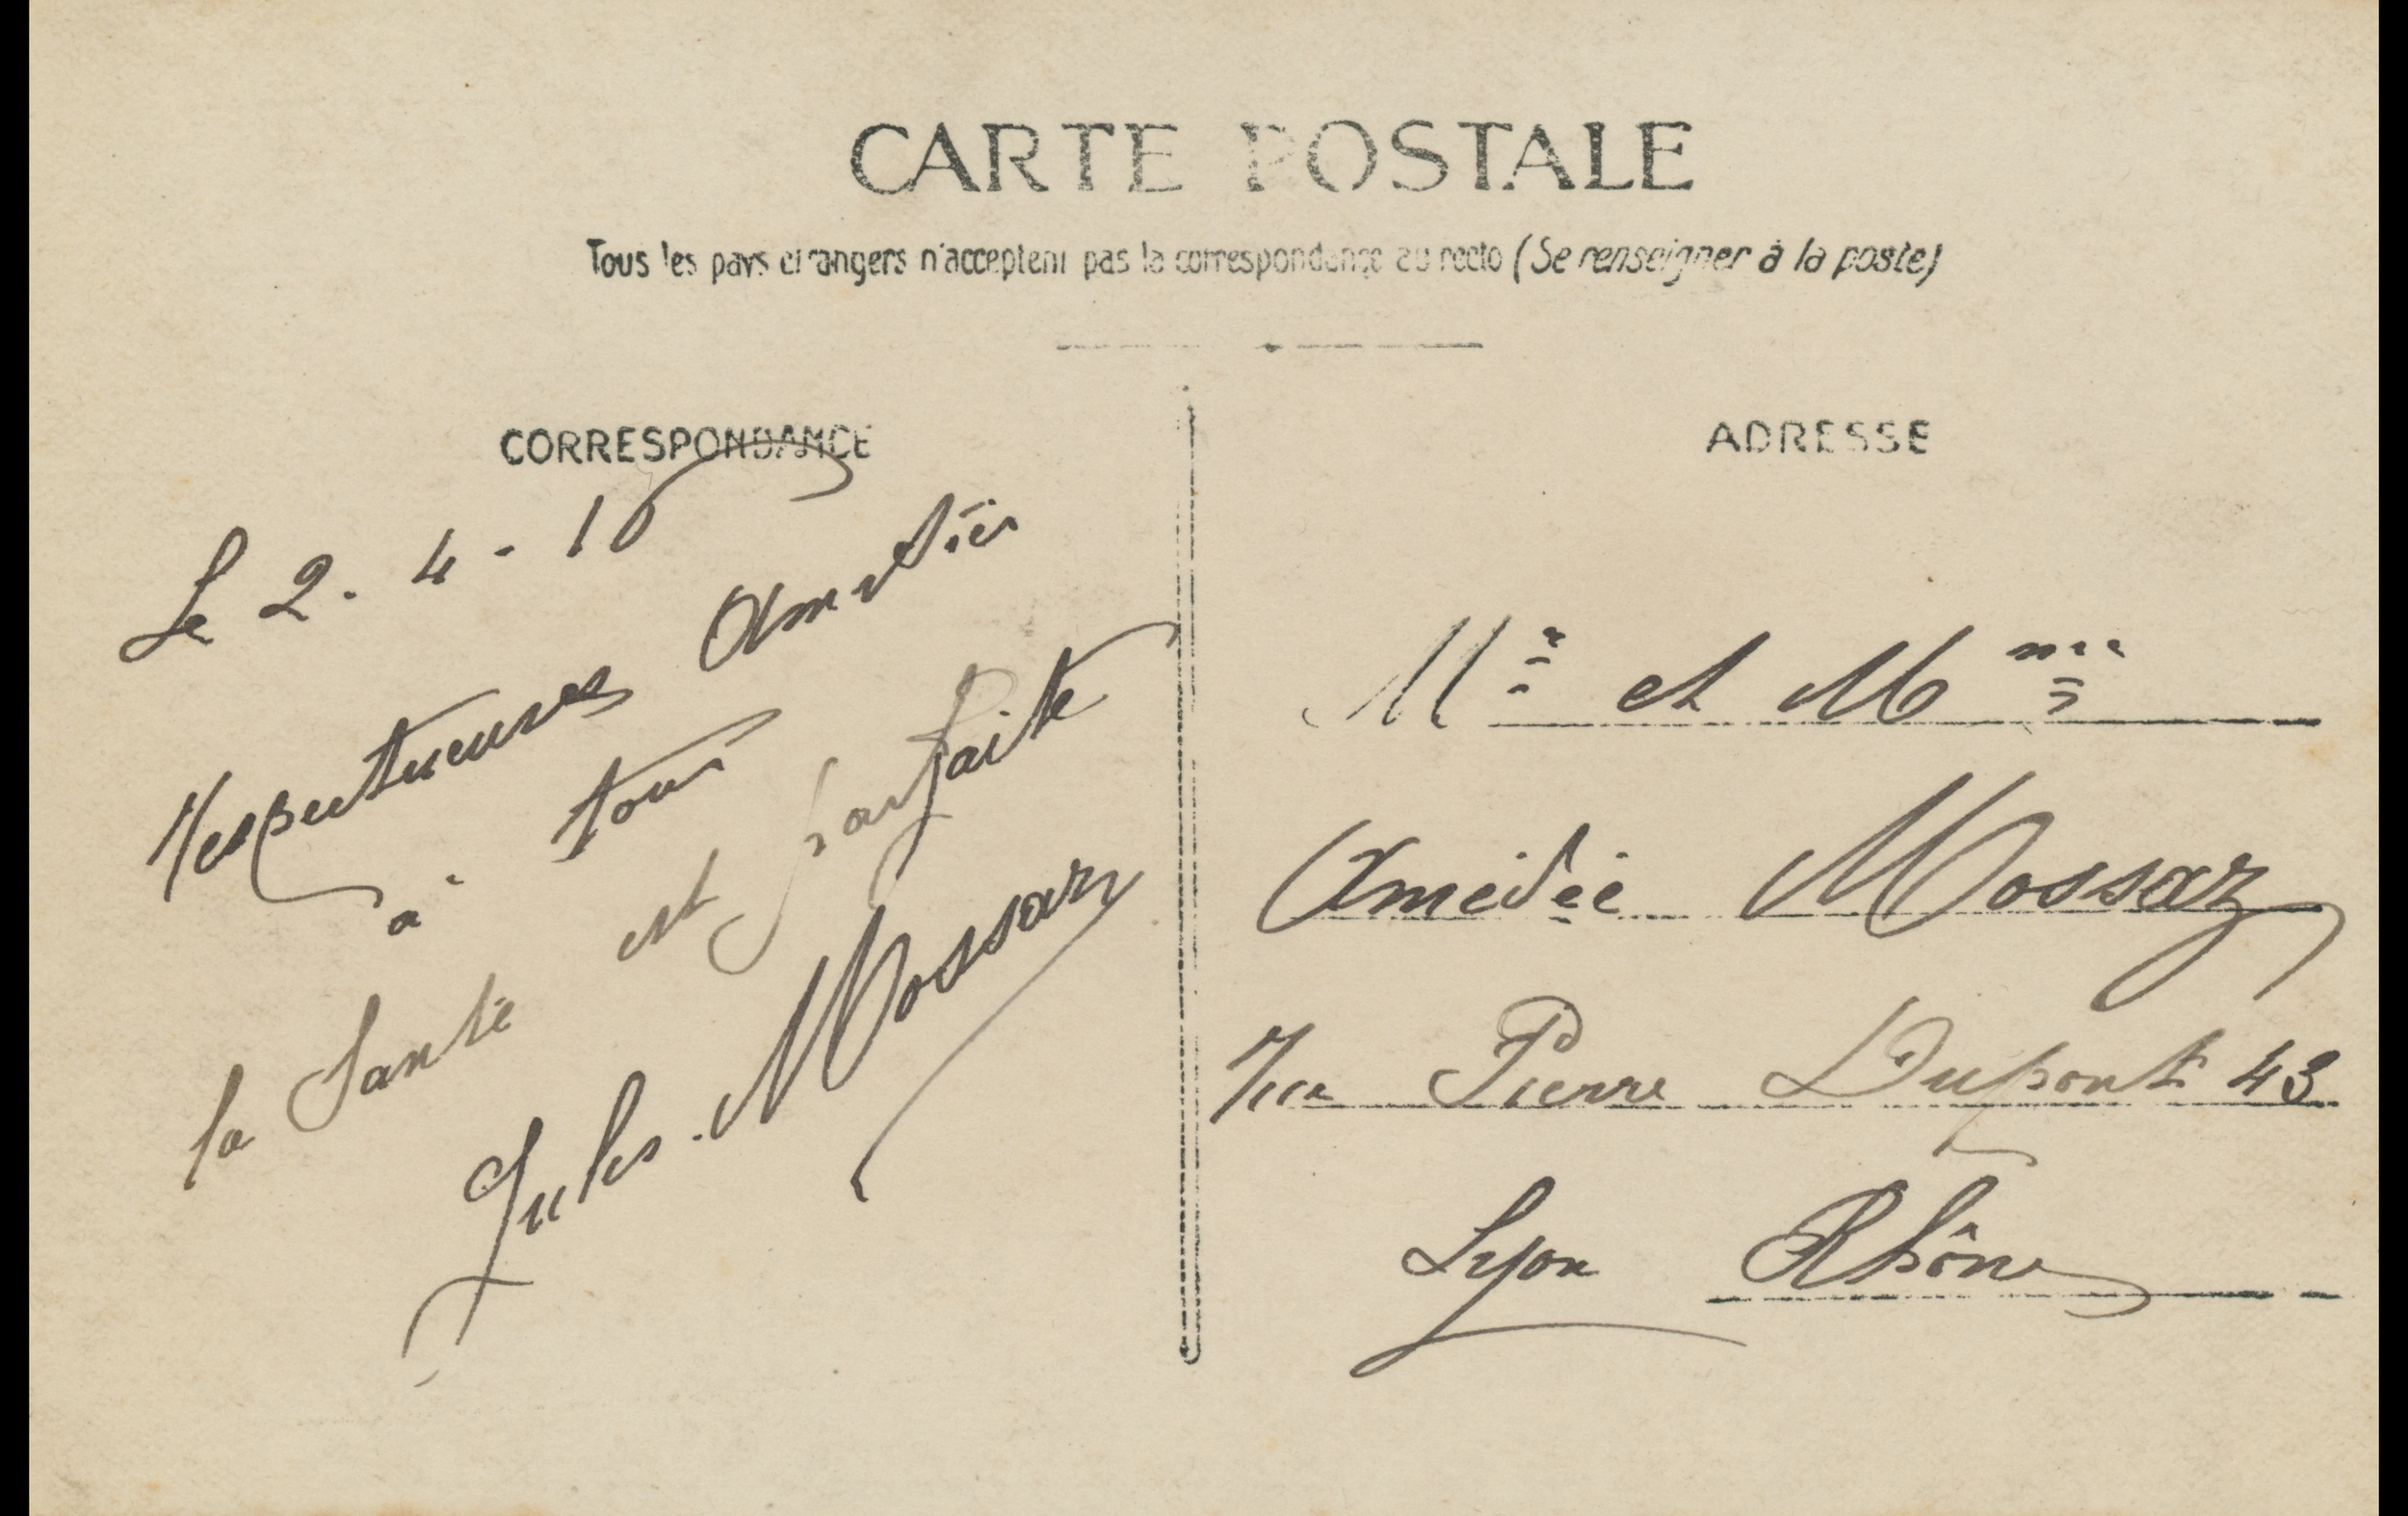 CARTE POSTALE
Tous les pays étrangers n'acceptent pas la correspondance au recto (Se renseigner à la poste)
CORRESPONDANCE
Le 2 - 4 - 16
Respectueuses Amitiés
à tous
la Santé est parfaite
Jules Mossaz
ADRESSE
Mr et Mme
Amédée Mossaz
Rue Pierre Dupont 43
Lyon Rhône